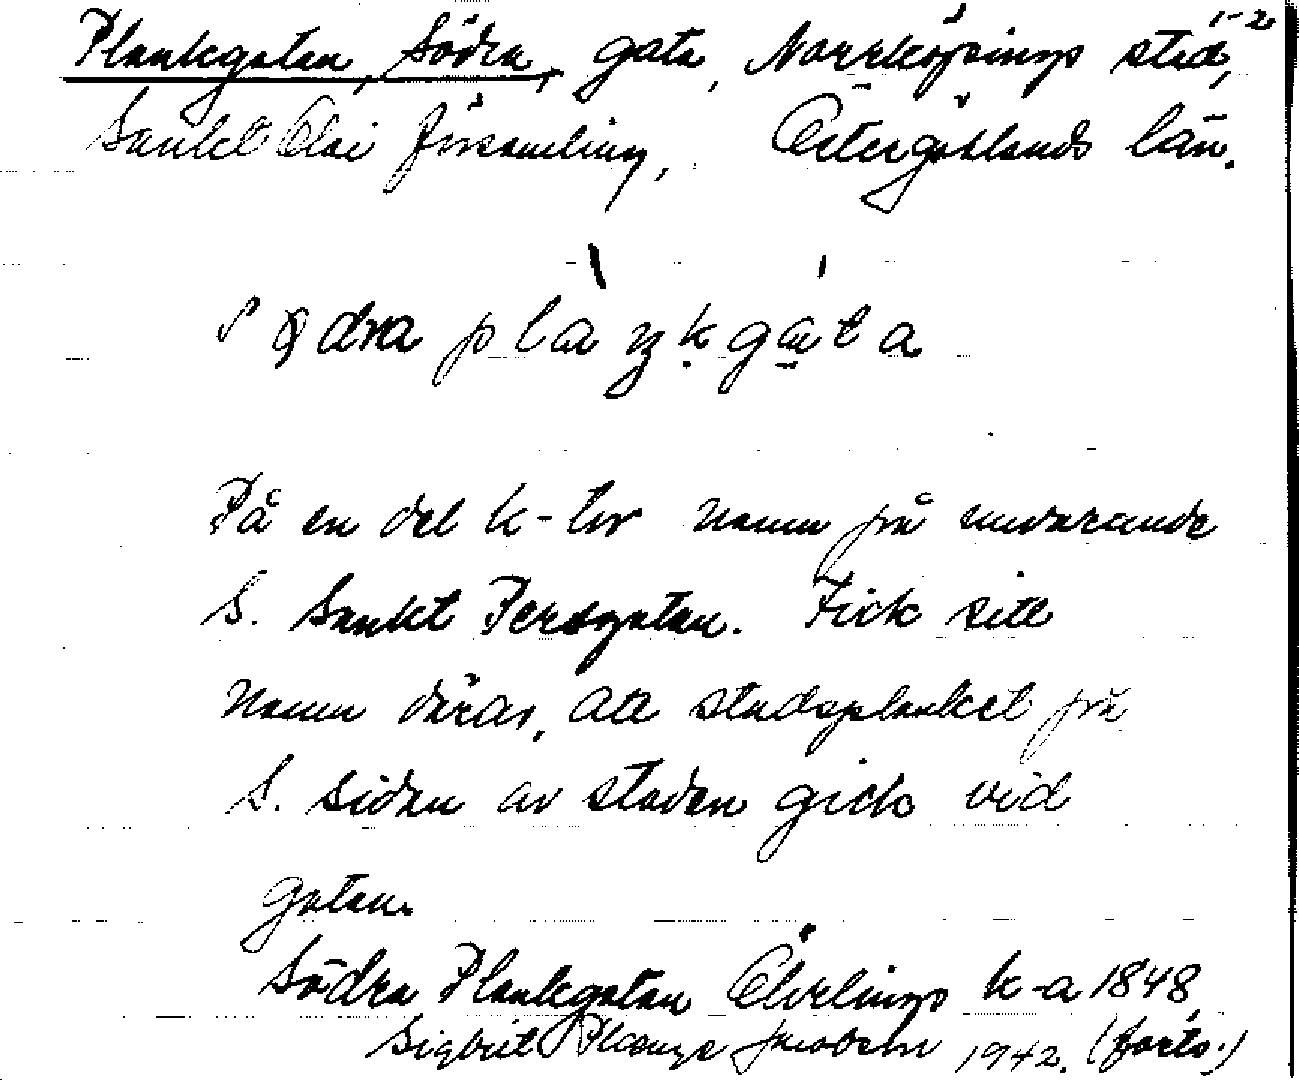 1-2
Plankgatan, Södra, gata, Norrköpings stad,
Sankt Olai församling, Östergötlands län.
sødra plàŋkgáta
På en del k-tor namn på nuvarande
S. Sankt Persgatan. Fick sitt
namn därav, att stadsplanket på
S. sidan av staden gick vid
gatan.
Södra Plankgatan k-a 1848
Sigbrit Plænge Jacobson 1942. (forts.)